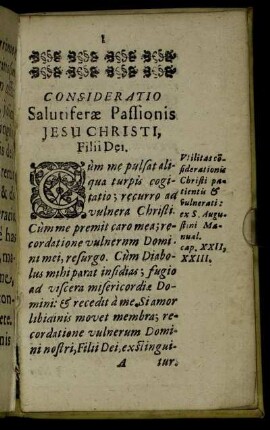 1
CONSIDERATIO
Salutiferæ Passionis
JESU CHRISTI,
Filii Dei.
CUm me pulsat ali-
qua turpis cogi-
tatio; recurro ad
vulnera Christi.
Cùm me premit caro mea; re-
cordatione vulnerum Domi-
ni mei, resurgo. Cùm Diabo-
lus mihi parat insidias; fugio
ad viscera misericordiæ Do-
mini: & recedit à me. Si amor
libidinis movet membra; re-
cordatione vulnerum Domi-
ni nostri, Filii Dei, exstingui-
A tur.
Vtilitas cō-
siderationis
Christi pa-
tientis &
vulnerati:
ex S. Augu-
stini Ma-
nual.
cap. XXII,
XXIII.